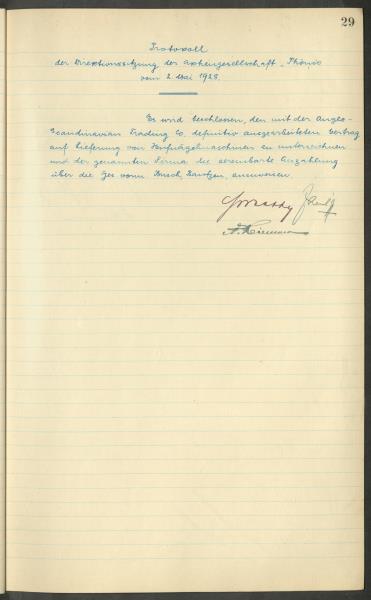 29
Protokoll
der Direktionssitzung der Aktiengesellschaft „Phönix
vom 2 Mai 1928.
Es wird beschlossen, den mit der Anglo-
Scandinavian Trading Co, definitiv ausgearbeiteten Vertrag
auf Lieferung von maschinen zu unterzeichnen
und der genannten Firma die vereinbarte Anzahlung
über die Ges vorm anzuweisen.